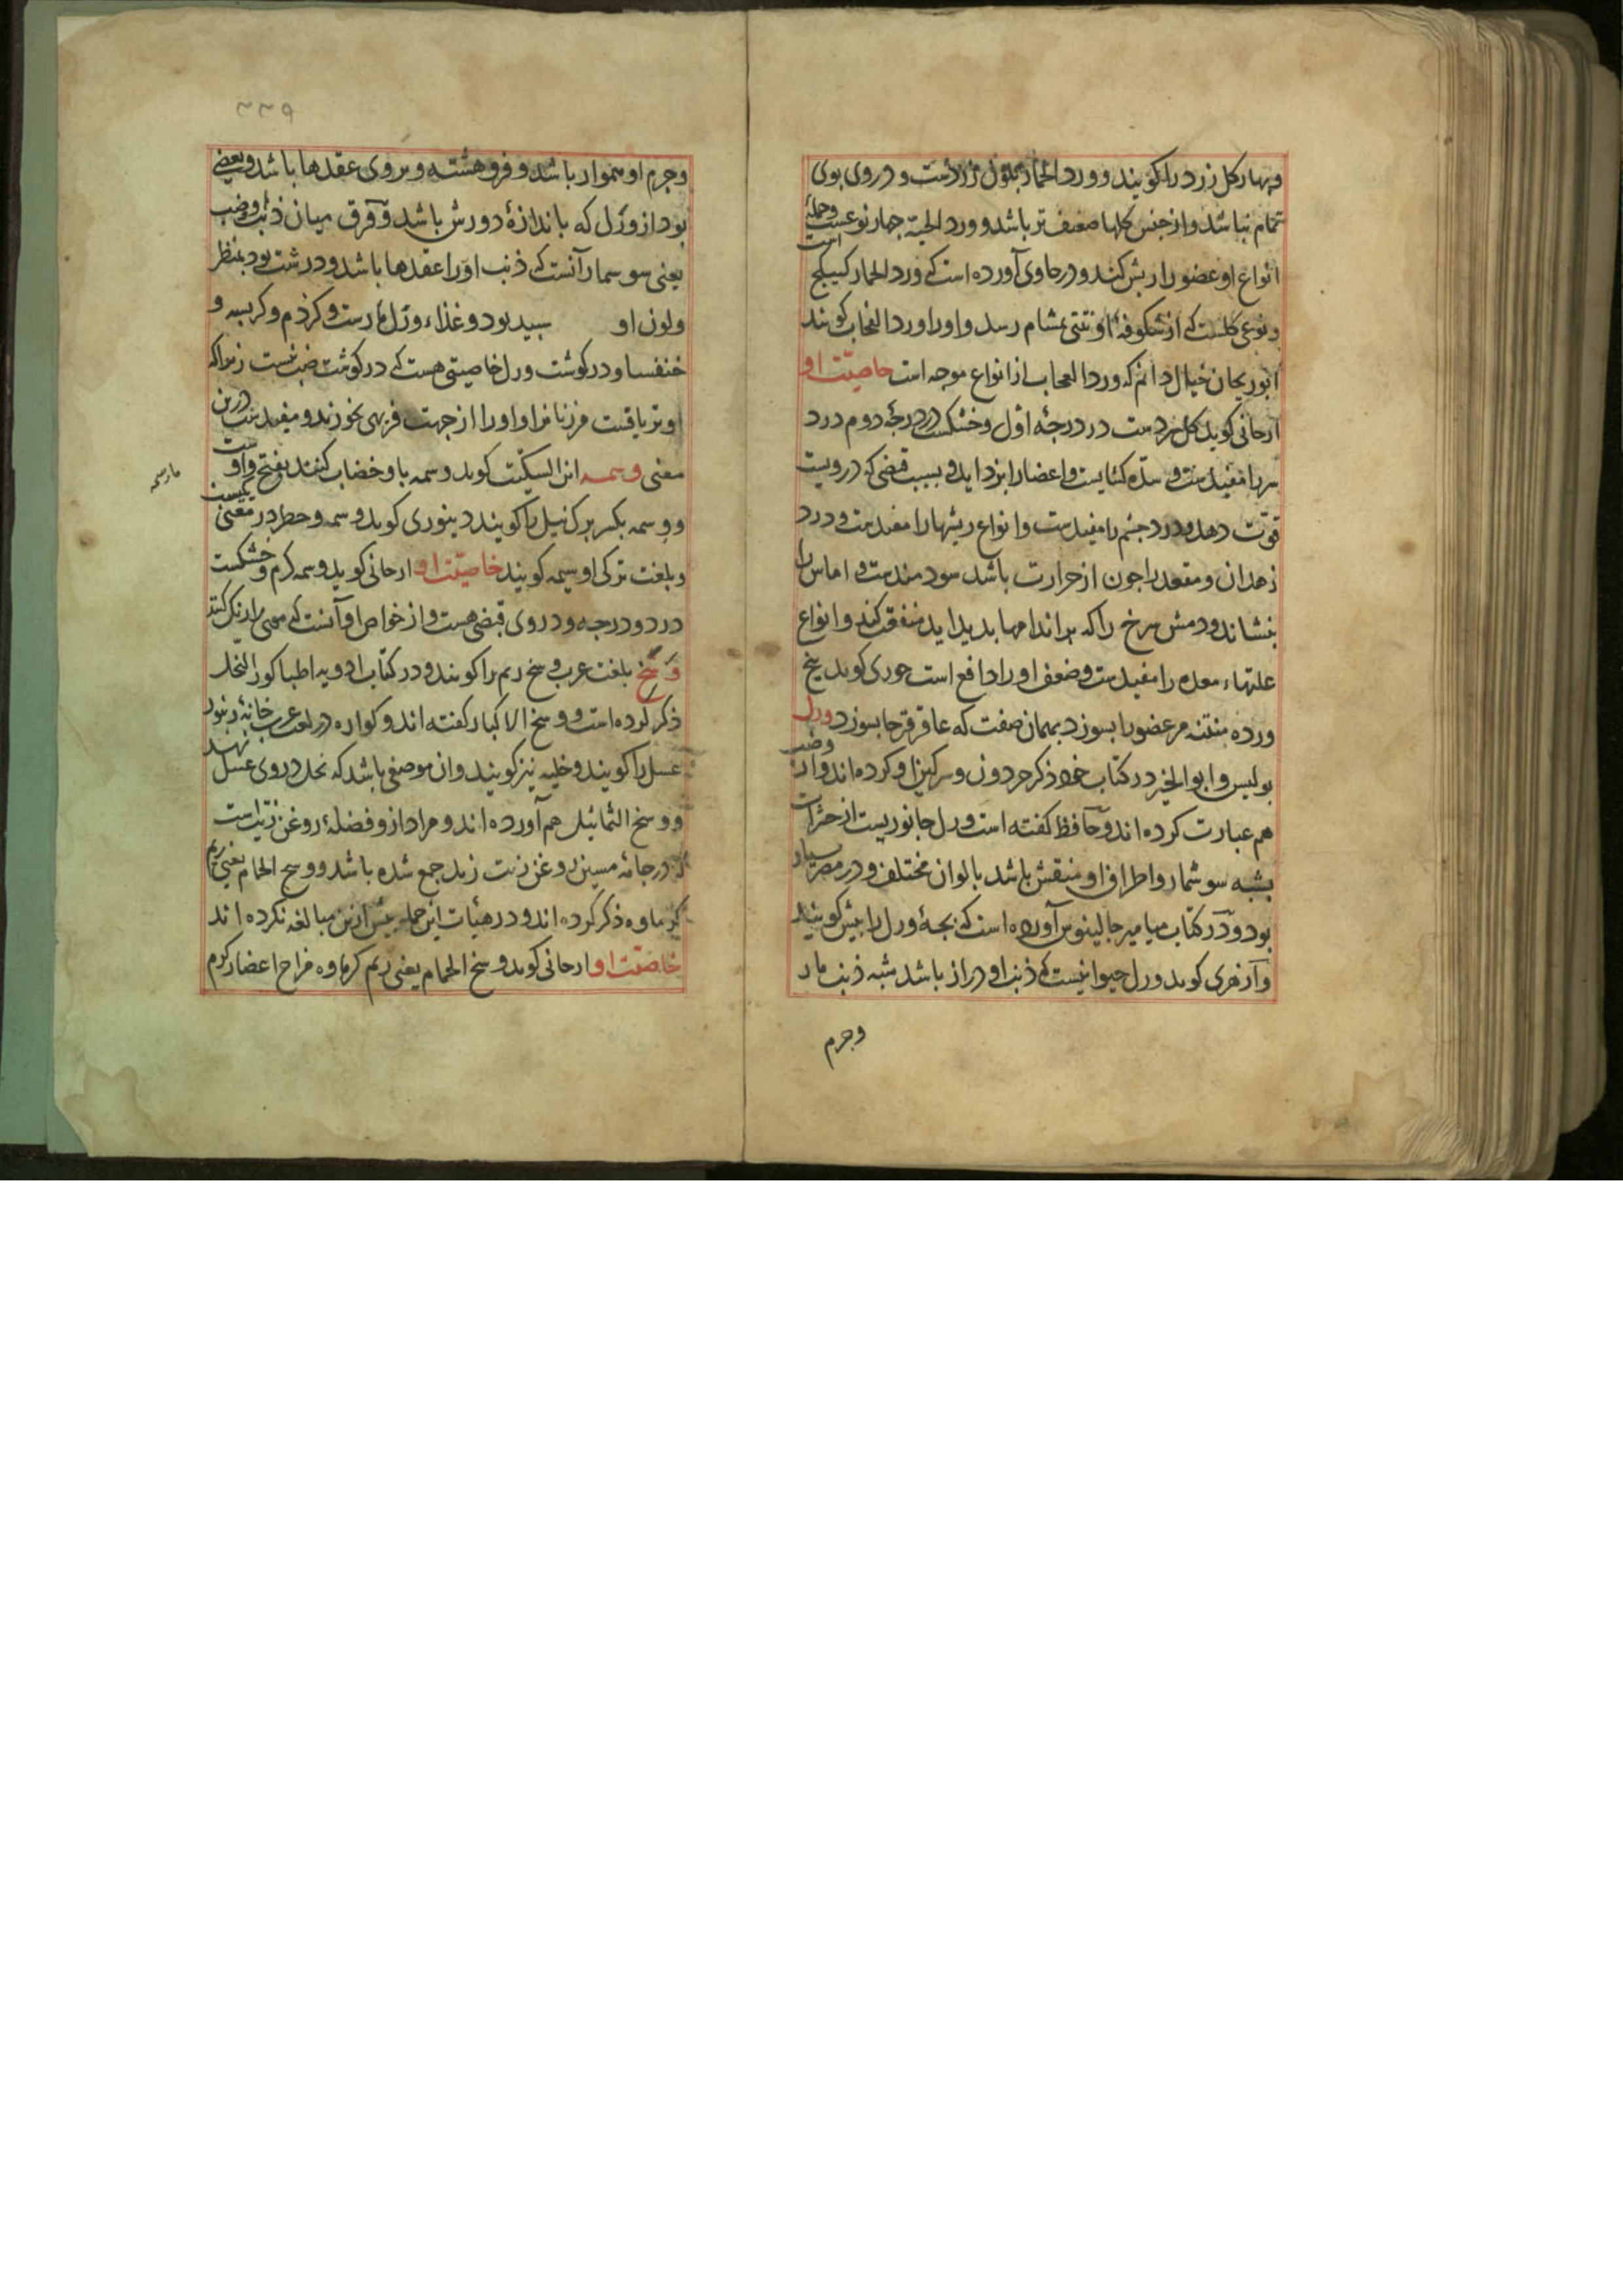 وبهار کل زرد را کویند و ورد الحمار بلون زردست و در وی بوی
تمام نباشد و از جنس کلها ضعیف تر باشد و ورد الحبة جهار نوعست و جمله
انواع او عضو را ریش کند و در حاوی آورده است که ورد الحمار کبیکج است
و نوعی کلست که از شکوفهٔ او نتنی بمشام رسد و او را ورد الفجاب کویند
ابوریحان خیال دانم که ورد العجاب از انواع موجه است خاصیّت او
ارجانی کوید کل سردست در درجهٔ اوّل و خشکست در درجهٔ دوم درد
سر را مفیدست و سدّه کشایست و اعضا را بزداید و بسبب قبضی که درویست
قوّت دهد و درد جشم را مفیدست و انواع ریشها را مفیدست و درد
زهدان و مقعد را جون از حرارت باشد سودمندست و اماس را
بنشاند و دمش سرخ را که بر اندامها بدید اید منفعت کند و انواع
علتهاء معده را مفیدست و ضعف او را دافع است حوری کوید بیخ
ورده منتنه مر عضو را بسوزد بهمان صفت که عاقرقرحا بسوزد ورل
بولیس و ابو الخیر در کتاب خود ذکر حردون و سرکین او کرده اند و از وضب
هم عبارت کرده اند و حافظ کفته است ورل جانوریست از حشرات
بشبه سوشمار و اطراف او منقش باشد بالوان مختلف و در مصر بسیار
بود و در کتاب میامیر جالینوس آورده است که بجهٔ ورل را بیش کویند
و ازهری کوید ورل حیوانیست که ذنب او دراز باشد بشبه ذنب مار
وجرم
۳۳۹
وجرم او هموار باشد و فروهشته و بر وی عقدها باشد و بعضی
بود از ورل که باندازهٔ دو رش باشد و فرق میان ذنب او و ضب
یعنی سوسمار آنست که ذنب او را عقدها باشد و درشت بود بمنظر
ولون او سبید بود و غذاء ورل مارست و کزدم و کربسه و
خنفسا و در کوشت ورل خاصیتی هست که در کوشت ضب نیست زیرا که
او تریاقست و زنان او را از جهت فربهی بخورند و مفیدست درین
معنی وسمه ابن السکّیت کوید وسمه با و خضاب کنند بفتح واو
و وسمه بکسر برک نیل را کویند دینوری کوید وسمه و خطر در معنی یکیست
و بلغت ترکی اوسمه کویند خاصیّت او ارجانی کوید وسمه کرم و خشکست
در دو درجه و در وی قبضی هست و از خواص او آنست که موی را رنک کند
وَسَخ بلغت عرب وسخ ریم را کویند و در کتاب ادویه اطبا کور النحل
ذکر کرده است و وسخ الاکبار کفته اند و کواره در لغت عرب خانهٔ زنبور
عسل را کویند و خلیه نیز کویند و ان موضعی باشد که نحل در وی عسل نهد
و وسخ التماثیل هم آورده اند و مراد ازو فضلهٔ روغن زیتست
که در جامهٔ مسین روغن زیت زید جمع شده باشد و وسخ الحمام یعنی ریم
کرماوه ذکر کرده اند و در هیات این جمله بیش ازین مبالغه نکرده اند
خاصیّت او ارجانی کوید وسخ الحمام یعنی ریم کرماوه مزاج اعضا کرم